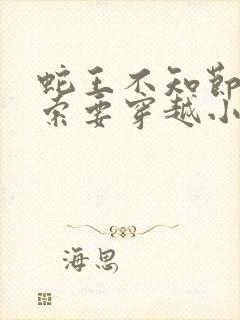 蛇王不知节
索要穿越小
海思